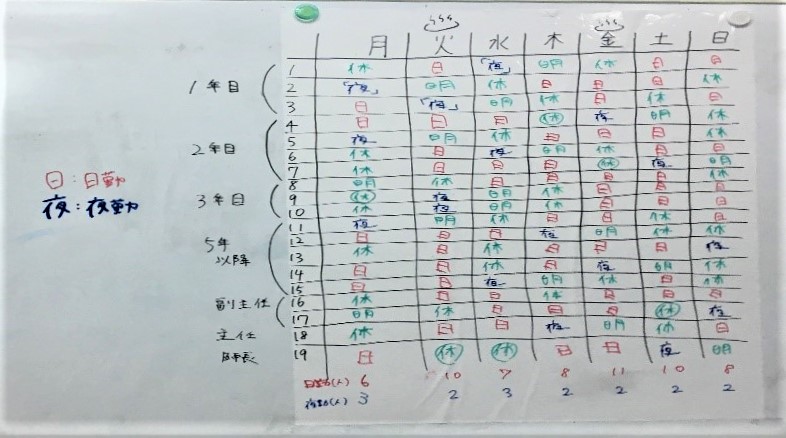 月 火 水 木 金 土 日
1年目
1 休 日 「夜」 明 休 日 日
2 「夜」 明 休 日 日 日 休
3 日 「夜」 明 休 日 休 日
2年目
4 日 日 日 休 夜 明 休
5 夜 明 休 日 日 日 休
6 休 日 夜 明 休 日 日
7 休 日 日 日 休 夜 明
3年目
8 明 休 日 日 日 日 休
9 休 夜 明 休 日 日 日
10 休 夜 明 休 日 日 日
5年以降
11 夜 明 休 日 日 休 日
12 日 日 日 夜 明 休 休
13 休 日 休 日 日 日 夜
14 日 日 休 日 夜 明 休
15 日 日 夜 明 休 日 休
副主任
16 休 日 日 休 日 日 日
17 明 休 日 日 日 休 夜
主任
18 休 日 日 夜 明 休 日
19 日 休 休 日 日 夜 明
日勤(人) 6 10 7 8 11 10 8
夜勤(人) 3 2 3 2 2 2 2
日:日勤
夜:夜勤